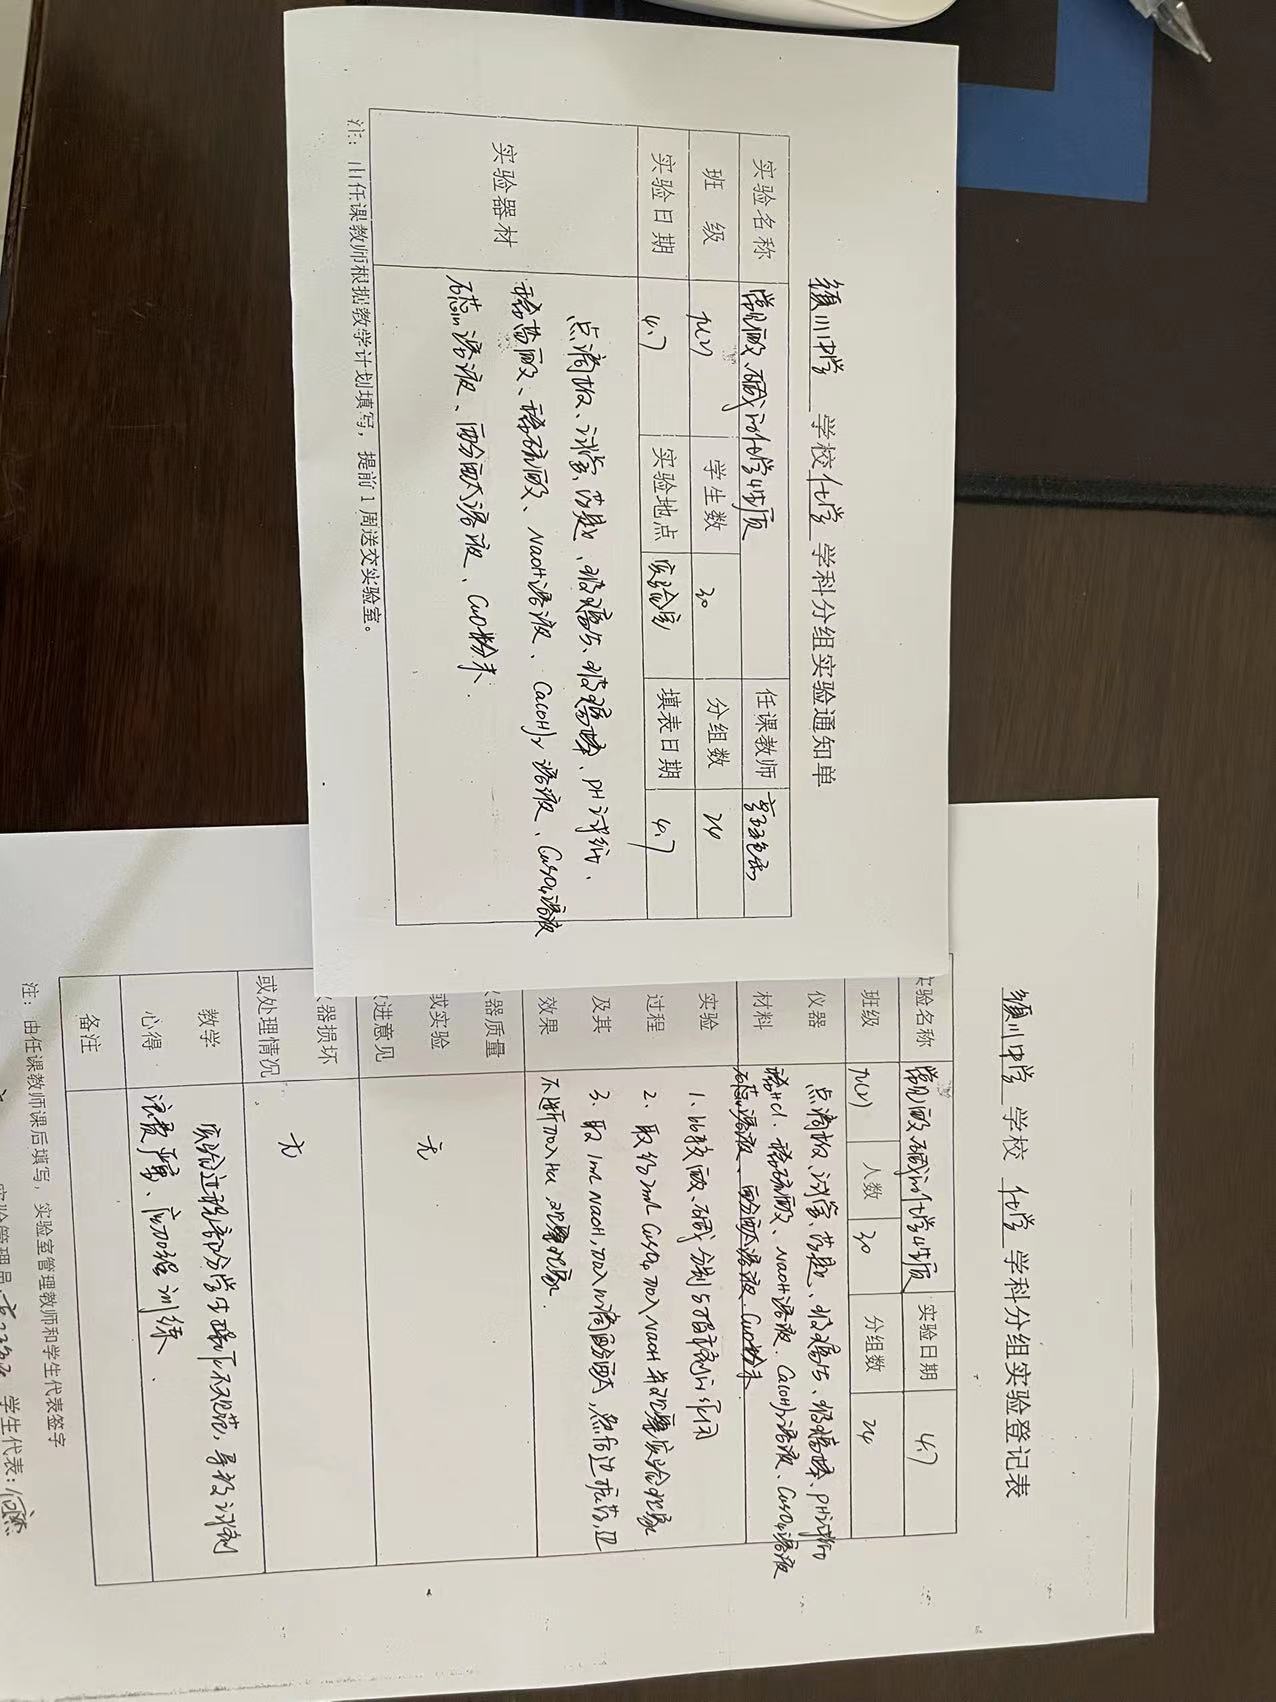 颍川中学 学校 化学 学科分组实验通知单
实验名称 常见酸、碱的化学性质 任课教师
班 级 九(2) 学生数 30 分组数 24
实验日期 4.7 实验地点 实验室 填表日期 4.7
实验器材
点滴板、试管、药匙、玻璃片、玻璃棒、PH试纸、
稀盐酸、稀硫酸、NaOH溶液、Ca(OH)₂溶液、CuSO₄溶液
石蕊溶液、酚酞溶液、CuO粉末.
注：由任课教师根据教学计划填写，提前1周送交实验室。
颍川中学 学校 化学 学科分组实验登记表
实验名称 常见酸、碱的化学性质 实验日期 4.7
班级 九(2) 人数 30 分组数 24
仪器
材料
点滴板、试管、药匙、玻璃片、玻璃棒、PH试纸
稀HCl、稀硫酸、NaOH溶液、Ca(OH)₂溶液、CuSO₄溶液
石蕊溶液、酚酞溶液、CuO粉末
实验
过程
及其
效果
1、比较酸、碱分别与指示剂的作用
2、取约2mL CuSO₄加入NaOH并观察实验现象
3、取1mL NaOH，加入几滴酚酞，然后边振荡，边
不断加入HCl，观察现象.
器质量
或实验
进意见
无
器损坏
或处理情况
无
教学
心得
实验过程部分学生操作不规范，导致试剂
浪费严重、应加强训练.
备注
注：由任课教师课后填写，实验室管理教师和学生代表签字
实验管理员: 学生代表: